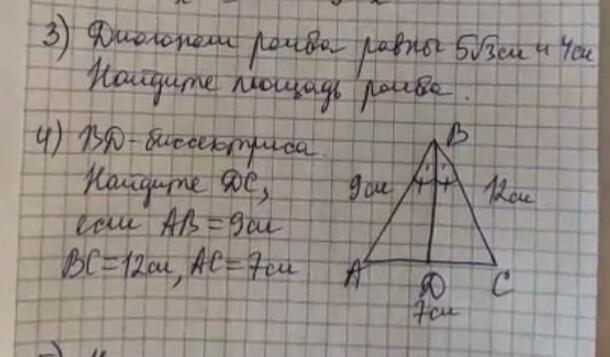 3) Диагонали ромба равны 5√3см и 4см
Найдите площадь ромба.
4) BD-биссектриса
Найдите DC,
если AB=9см
BC=12см, AC=7см
B
9см
12см
A
D
C
7см